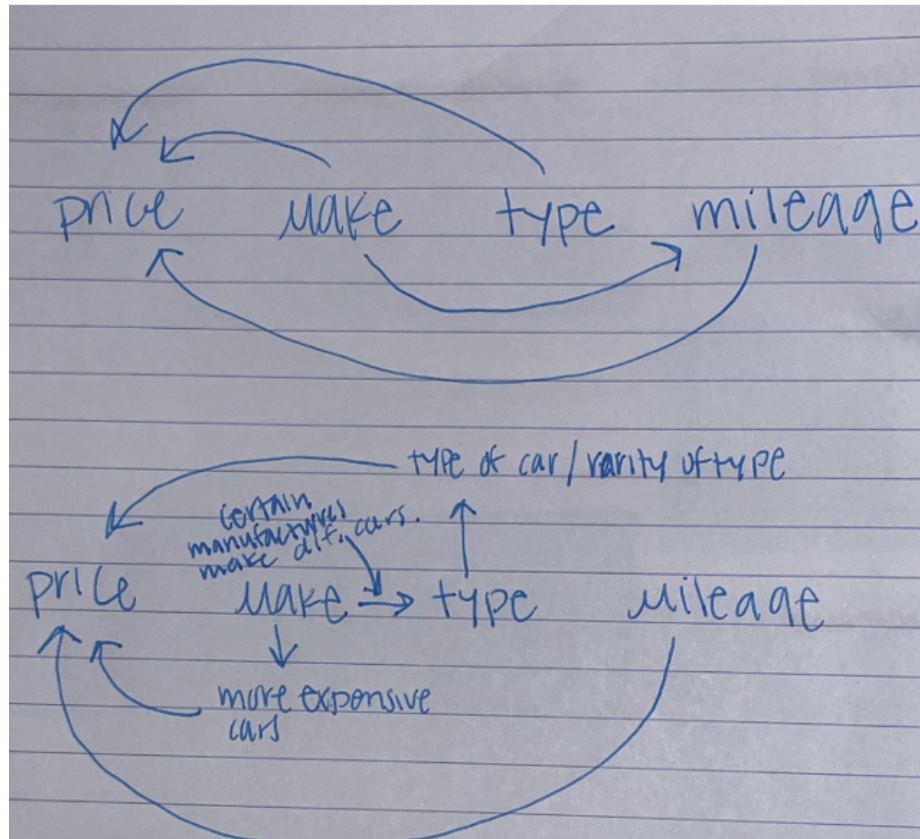 price make type mileage
type of car/rarity of type
certain
manufactures
make dif. cars.
price make type mileage
more expensive
cars